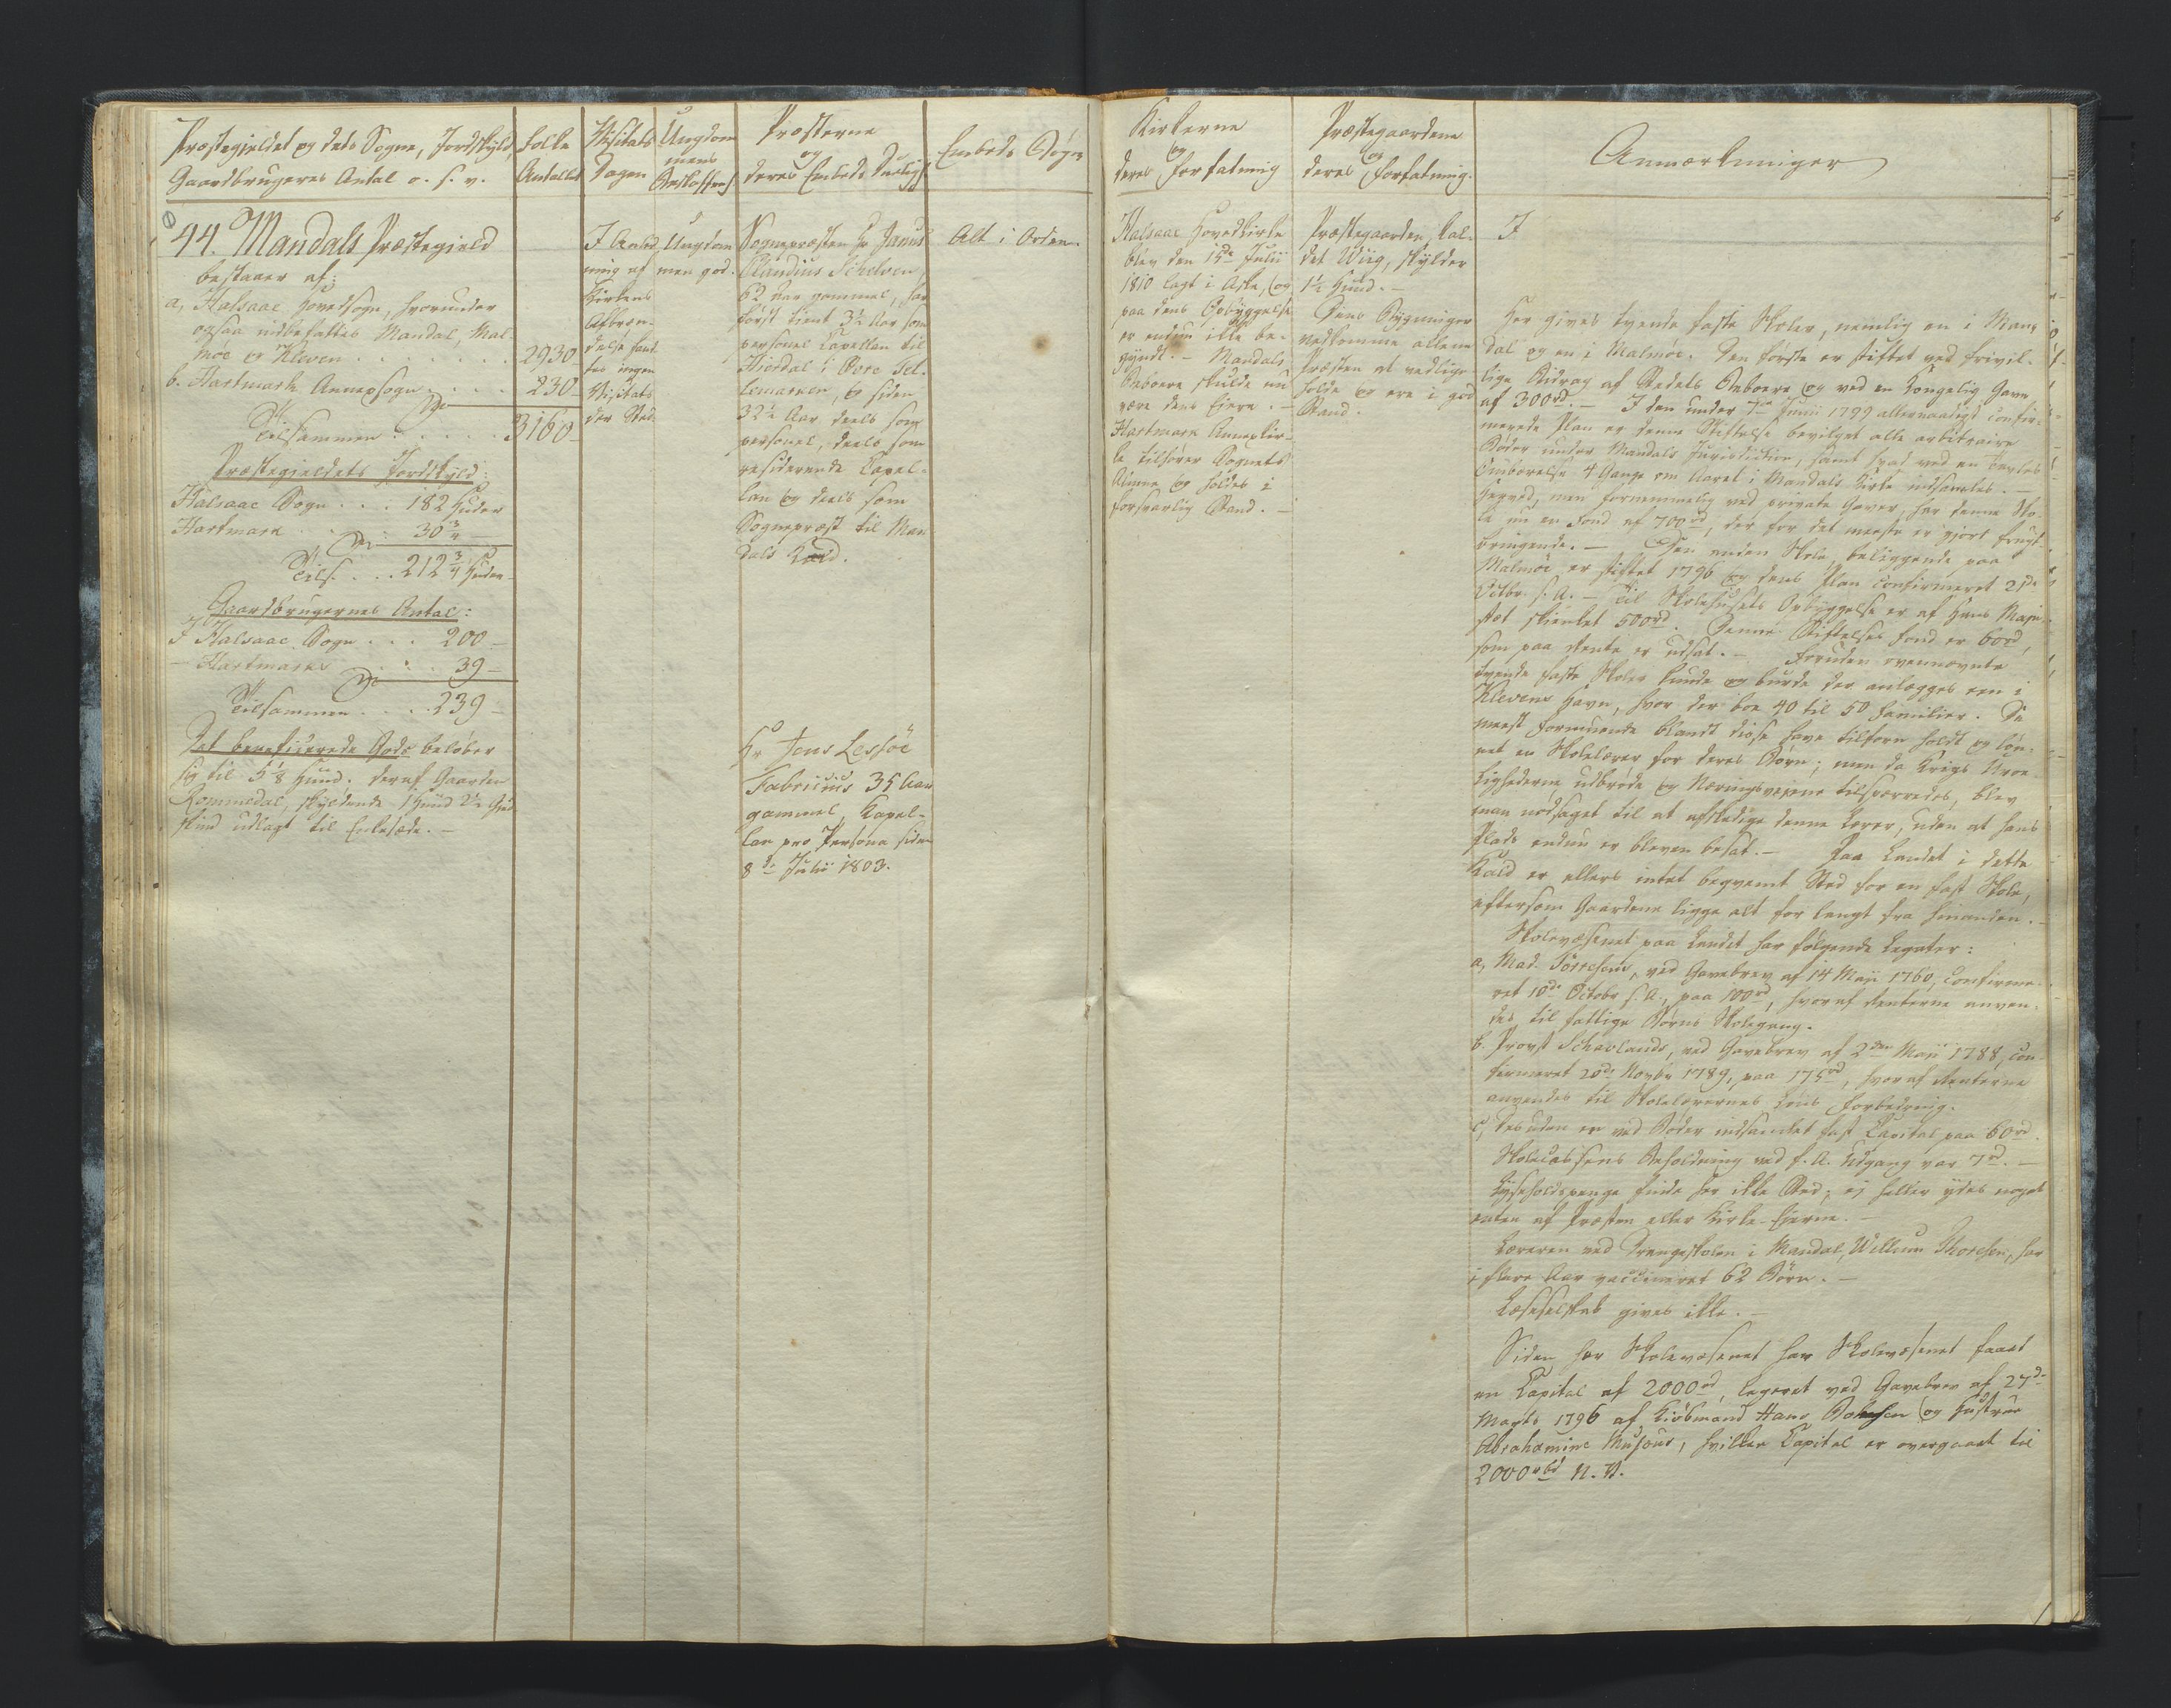 Præstegjeldet og dets Sogne, Jordskyld,
Gaardbrugeres Antal o. s. v.
Folke
Antallet
Visitats
Dagen
Ungdom
mens
Beskaffenh
Præsterne
og
deres Embeds Duelighed
Embeds Bøger
Kirkerne
og
deres Forfatning
Præstegaardene
og
deres Forfatning.
Anmærkninger
44. Mandals Præstegield
bestaaer af:
a, Halsaae Hovedsogn, hvorunder
ogsaa indbefattes Mandal, Mal-
møe og Kleven . . . . . . . 2930
b. Hartmark Annexsogn . . . . 230
Tilsammen . . . . . 3160
Præstegieldets Jordskyld:
Halsaae Sogn . . . 182 Huder
Hartmark . . . . 30 3/4
Tils. . . . 212 3/4 Huder
Gaardbrugernes Antal:
I Halsaae Sogn . . . 200
- Hartmarks . . . 39
Tilsammen . . . . 239
Det beneficerede Gods beløber
sig til 5 1/8 Huud. deraf Gaarden
Rommedal, skyldende 1 Huud 2 1/2 Gied
skind udlagt til Enkesæde. -
I Anled
ning af
Kirkens
Afbræn-
delse fand-
tes ingen
Visitats
der Sted.
Ungdom
men god.
Sognepræsten Hr Janus
Claudius Schelven,
62 Aar gammel, har
først tient 3 1/2 Aar som
personel Capellan til
Hiørdal i Øvre Tel-
lemarken, og siden
32 1/2 Aar deels som
personel, deels som
residerende Capel-
lan og deels som
Sognepræst til Man
dals Kald.
Hr Jens Lessøe
Fabricius 35 Aar
gammel, Kapel-
lan pro Persona siden
8de Julii 1803.
Alt i Orden.
Halsaae Hovedkirke
blev den 15de Julii
1810 lagt i Aske, og
paa dens Opbyggelse
er endnu ikke be-
gyndt. - Mandals
Beboere skulde nu
være dens Eiere. -
Hartmark Annexkir-
ke tilhører Sognets
Almue og holdes i
forsvarlig Stand. -
Præstegaarden, kal-
det Wiig, skylder
1 1/2 Huud. -
Dens Bygninger
vedkomme allene
Præsten at vedlige-
holde og ere i god
Stand.
I
Her gives tvende faste Skoler, nemlig en i Man-
dal og en i Malmøe. Den første er stiftet ved frivil-
lige Bidrag af Stedets Beboere og ved en Kongelig Gave
af 300rd. - I den under 7de Junii 1799 allernaadigst confir-
merede Plan er denne Stiftelse bevilget alle arbitraire
Bøder under Mandals Jurisdiction, samt hvad ved en Tavles
Ombærelse 4 Gange om Aaret i Mandals Kirke indsamles. -
Herved, men fornemmelig ved private Gaver, har denne Sko-
le nu en Fond af 700rd, der for det meeste er giort frugt-
bringende. - Den anden Skole, beliggende paa
Malmøe, er stiftet 1796 og dens Plan confirmeret 21de
Octbr. s. A. - Til Skolehusets Opbyggelse er af Hans Maje-
stæt skienket 500rd. Denne Stiftelses Fond er 60rd,
som paa Rente er udsat. - Foruden ovennævnte
tvende faste Skoler kunde og burde der anlægges een i
Klevens Havn, hvor der boe 40 til 50 Familier. De
meest formuende blandt disse have tilforn holdt og løn-
net en Skolelærer for deres Børn; men da Krigs Uroe-
lighederne udbrøde og Næringsveiene tilspærredes, blev
man nødsaget til at afskedige denne Lærer, uden at hans
Plads endnu er bleven besat. - Paa Landet i dette
Kald er ellers intet beqvemt Sted for en fast Skole,
eftersom Gaardene ligge alt for langt fra hinanden. -
Skolevæsenet paa Landet har følgende Legater:
a, Mad. ved Gavebrev af 14 Maji 1760, confirme-
ret 10de Octobr s. A., paa 100rd, hvoraf Renterne anven-
des til fattige Børns Skolegang.
b. Provst Schavlands, ved Gavebrev af 2den Maji 1788, con-
firmeret 20de Novbr 1789, paa 175rd, hvoraf Renterne
anvendes til Skolelærernes Løns Forbedring.
c, Desuden er ved Bøder indsamlet fast Capital paa 60rd.
Skolecassens Beholdning ved f. A. Udgang var 7rd. -
Lyseholdspenge finde her ikke Sted; ej heller ydes noget
enten af Præsten eller Kirke-Eierne. -
Læreren ved Drengeskolen i Mandal, Willum Thorsen, har
i flere Aar vaccineret 62 Børn. -
Læseselskab gives ikke. -
Siden har Skolevæsenet faaet
en Capital af 2000rd, legeret ved Gavebrev af 27de
Marts 1796 af Kiøbmand Hans og Hustrue
Abrahamine Musæus, hvilken Capital er overgaaet til
2000rbd N. V.